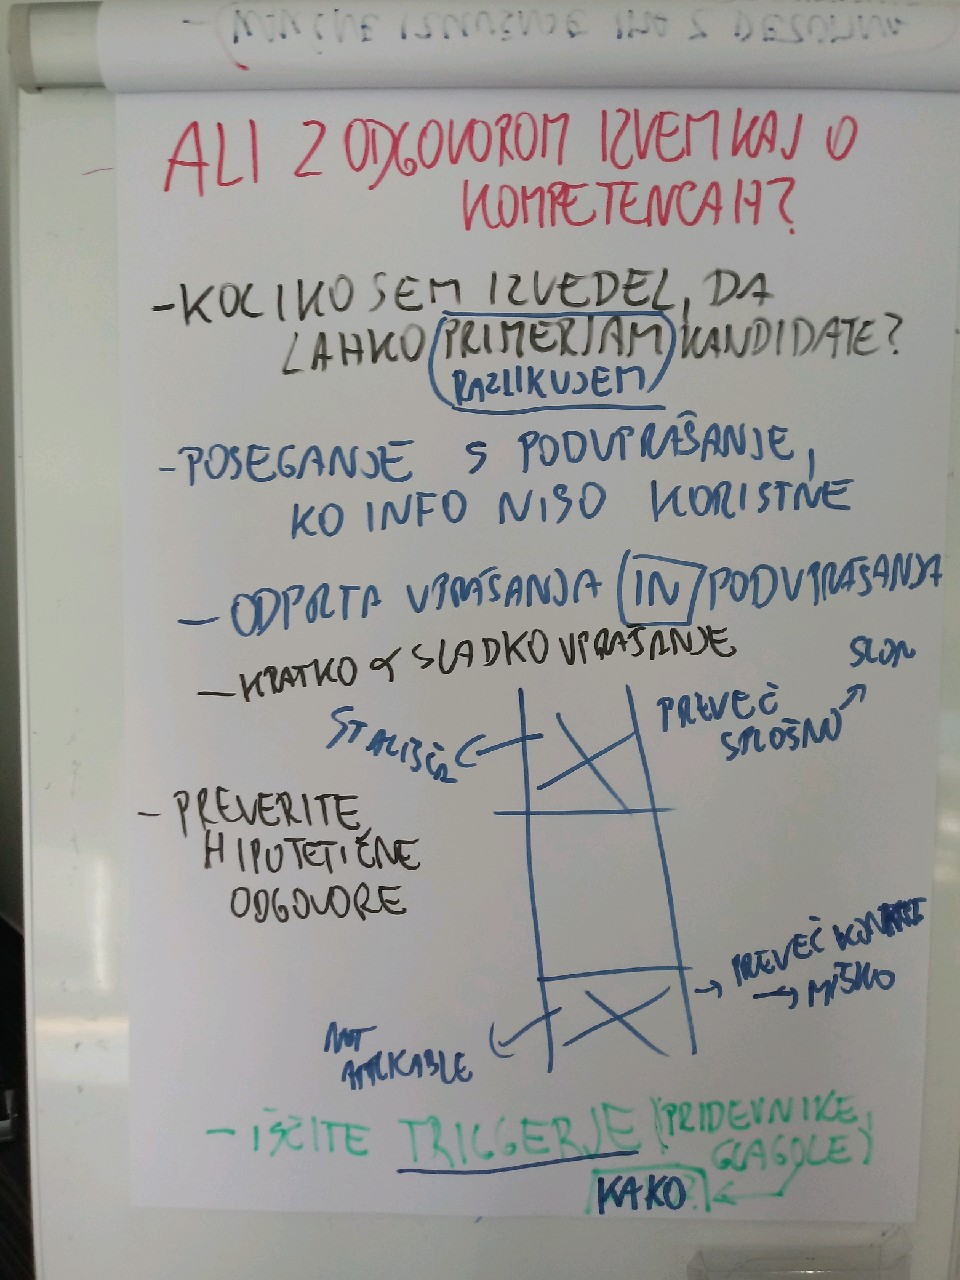 ALI Z ODGOVOROM IZVEM KAJ O
KOMPETENCAH?
- KOLIKO SEM IZVEDEL, DA
LAHKO PRIMERJAM KANDIDATE?
RAZLIKUJEM
- POSEGANJE S PODVPRAŠANJE,
KO INFO NISO KORISTNE
- ODPRTA VPRAŠANJA IN PODVPRAŠANJA
- KRATKO & SLADKO VPRAŠANJE
SLON
STALIŠČA
PREVEČ
SPLOŠNO
- PREVERITE
HIPOTETIČNE
ODGOVORE
PREVEČ
MIŠKO
NOT
APPLICABLE
- IŠČITE TRIGGERJE (PRIDEVNIKE,
GLAGOLE)
KAKO